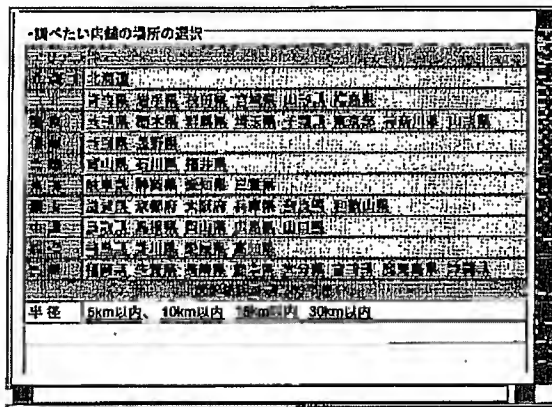 ・調べたい店舗の場所の選択
北海道 北海道
青森県 岩手県 秋田県 宮城県 山形県 福島県
関東 茨城県 栃木県 群馬県 埼玉県 千葉県 東京都 神奈川県 山梨県
新潟県 長野県
富山県 石川県 福井県
東海 岐阜県 静岡県 愛知県 三重県
滋賀県 京都府 大阪府 兵庫県 奈良県 和歌山県
中国 鳥取県 島根県 岡山県 広島県 山口県
徳島県 香川県 愛媛県 高知県
福岡県 佐賀県 長崎県 熊本県 大分県 宮崎県 鹿児島県 沖縄県
半径 5km以内、 10km以内 15km以内 30km以内